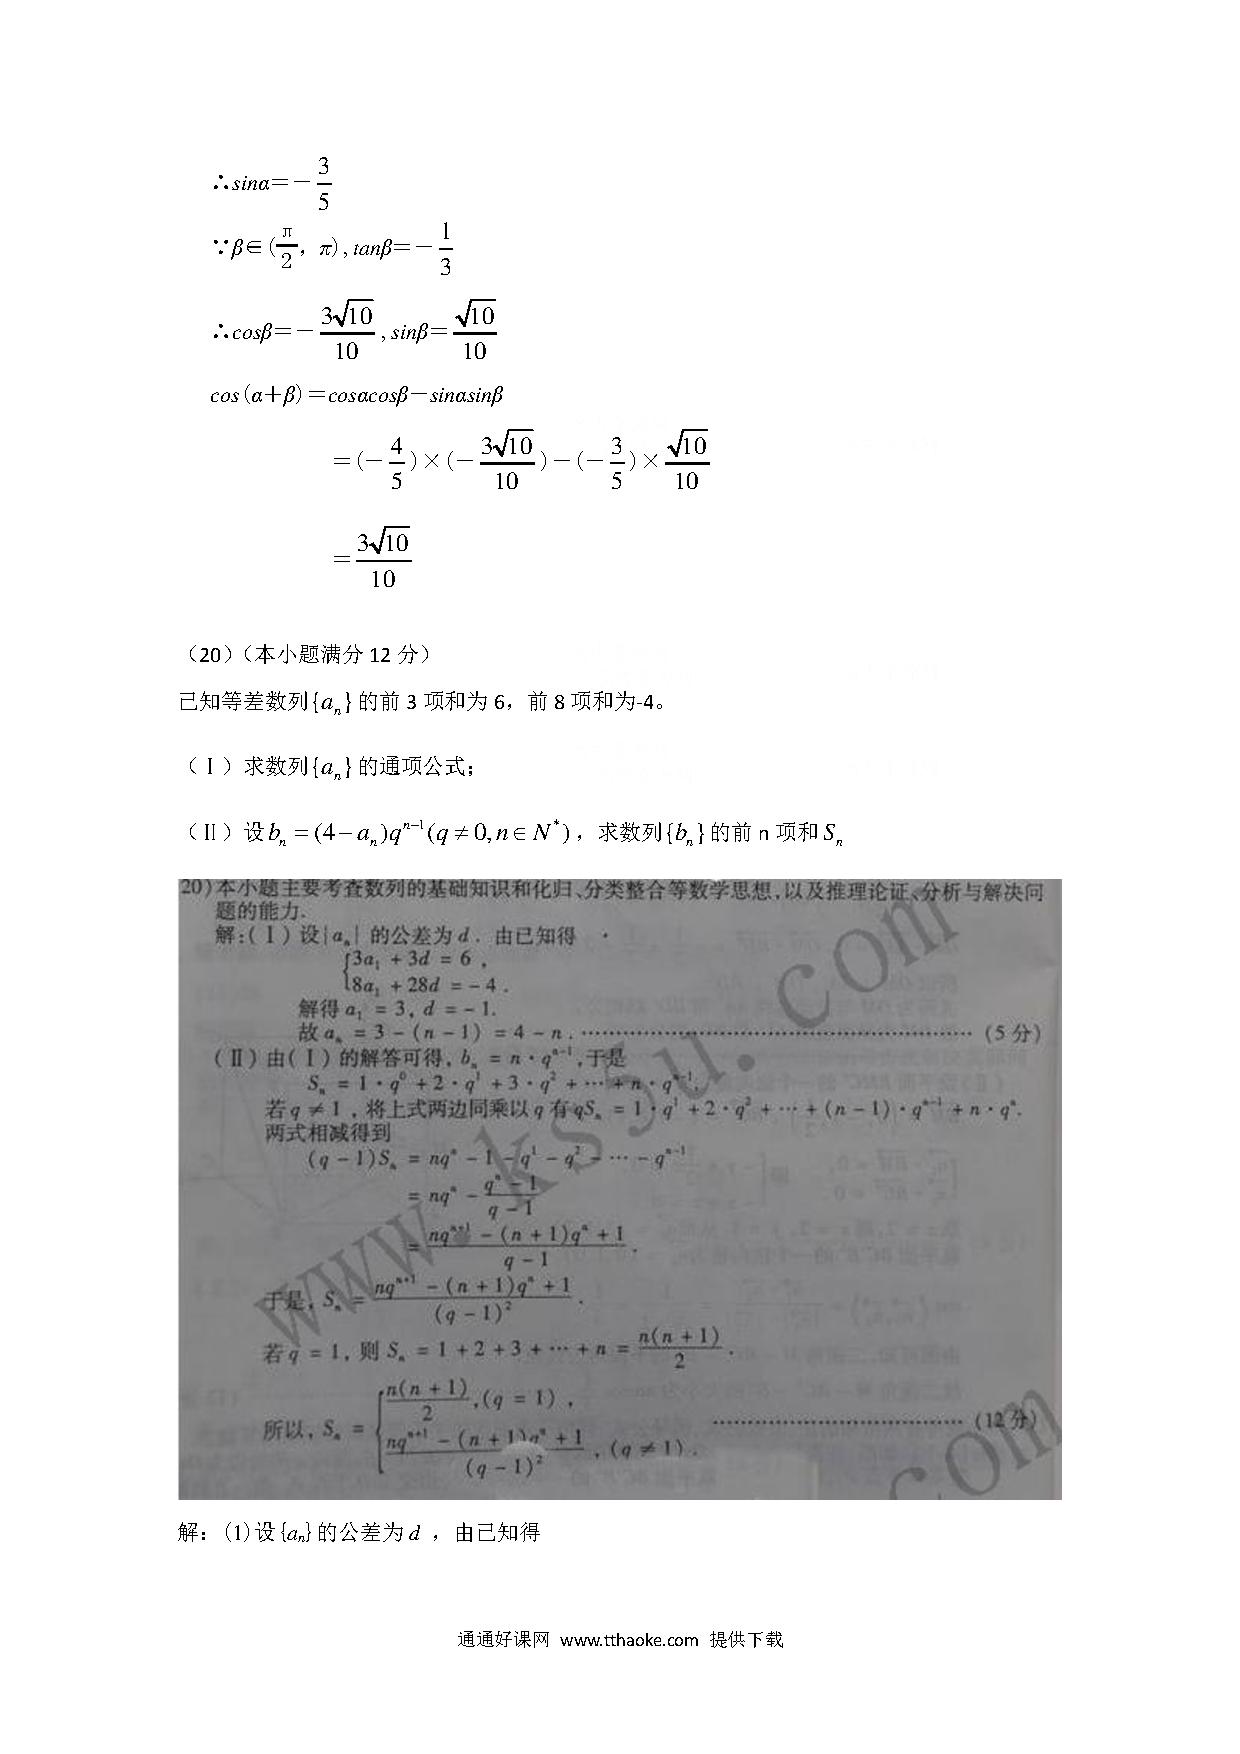 ∴sinα＝－3/5
∵β∈(π/2，π),tanβ＝－1/3
∴cosβ＝－3√10/10,sinβ＝√10/10
cos(α＋β)＝cosαcosβ－sinαsinβ
＝(－4/5)×(－3√10/10)－(－3/5)×√10/10
＝3√10/10
（20）（本小题满分 12 分）
已知等差数列{a_n}的前 3 项和为 6，前 8 项和为-4。
（Ⅰ）求数列{a_n}的通项公式；
（Ⅱ）设b_n＝(4－a_n)q^{n−1}(q≠0,n∈N^*)，求数列{b_n}的前 n 项和 S_n
20)本小题主要考查数列的基础知识和化归、分类整合等数学思想,以及推理论证、分析与解决问
题的能力.
解:(Ⅰ)设{a_n}的公差为d. 由已知得
{3a_1 + 3d = 6,
8a_1 + 28d = -4.
解得 a_1 = 3, d = -1.
故 a_n = 3 - (n - 1) = 4 - n. …………………………………………………… (5 分)
(Ⅱ)由(Ⅰ)的解答可得, b_n = n·q^{n-1},于是
S_n = 1·q^0 + 2·q^1 + 3·q^2 + … + n·q^{n-1}.
若 q ≠ 1 ,将上式两边同乘以 q 有 qS_n = 1·q^1 + 2·q^2 + … + (n - 1)·q^{n-1} + n·q^n.
两式相减得到
(q - 1)S_n = nq^n - 1 - q^1 - q^2 - … - q^{n-1}
= nq^n - (q^n - 1)/(q - 1)
= (nq^{n+1} - (n + 1)q^n + 1)/(q - 1).
于是, S_n = (nq^{n+1} - (n + 1)q^n + 1)/(q - 1)^2.
若 q = 1, 则 S_n = 1 + 2 + 3 + … + n = n(n + 1)/2.
所以, S_n = {n(n + 1)/2,(q = 1), ……………………………… (12 分)
(nq^{n+1} - (n + 1)q^n + 1)/(q - 1)^2, (q ≠ 1).
www.ks5u.com
com
解：(1)设{a_n}的公差为 d ，由已知得
通通好课网 www.tthaoke.com 提供下载